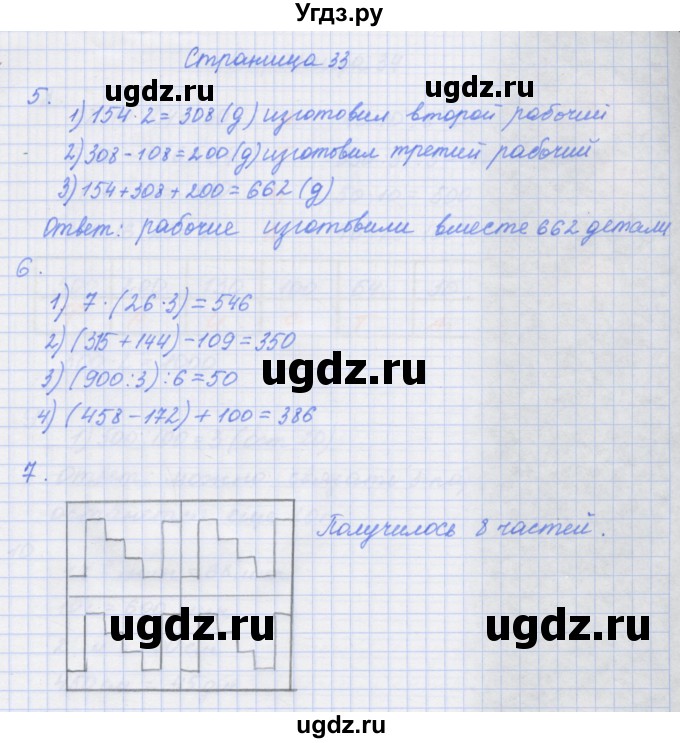 Угдз.ру
Страница 33
ugdz.ru
ugdz.ru
5.
1) 154·2=308 (д) изготовил второй рабочий
2) 308-108=200 (д) изготовил третий рабочий
3) 154+308+200=662 (д)
Ответ: рабочие изготовили вместе 662 детали
6.
1) 7·(26·3)=546
2) (315+144)-109=350
3) (900:3):6=50
ugdz.ru
4) (458-172)+100=386
7.
Получилось 8 частей.
ugdz.ru
ugdz.ru
ugdz.ru